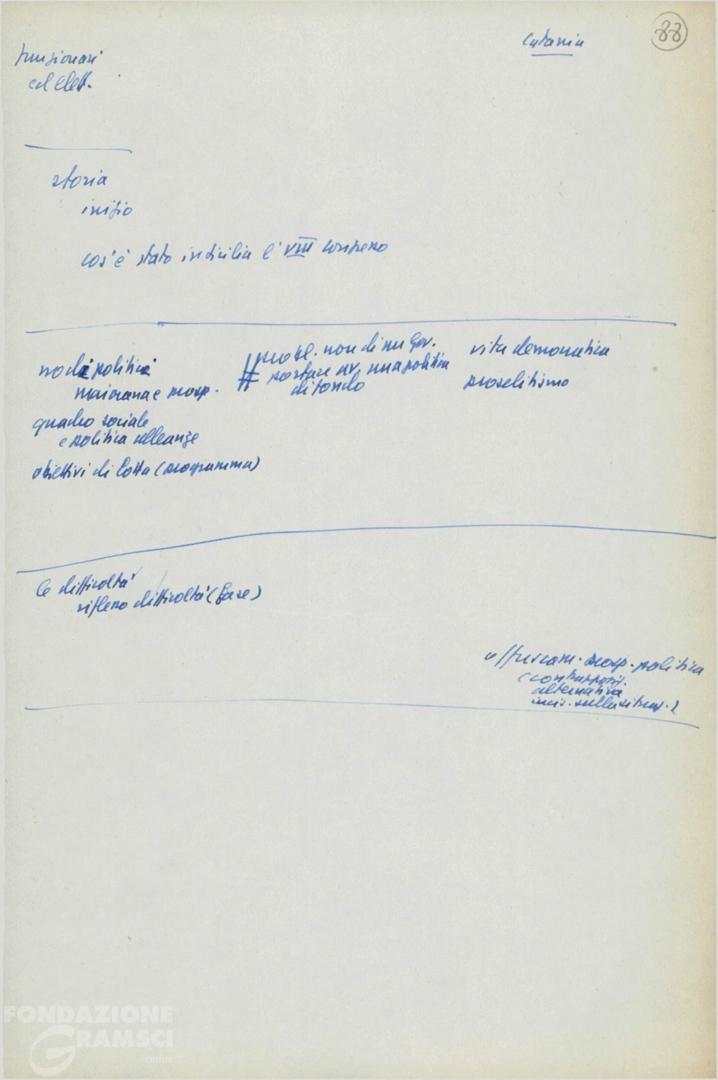 Catania
33
funzionari
ed elett.
storia
inizio
cos'è stato in Sicilia l'VIII congresso
nodi politici
e prosp.
quadro sociale
e politica alleanze
obiettivi di lotta (programma)
# probl. non di un gov.
portare av. una politica
di fondo
vita democratica
proselitismo
le difficoltà
riflesso difficoltà (base)
offuscam. prosp. politica
(contrappos.
alternativa
FONDAZIONE
GRAMSCI
onlus